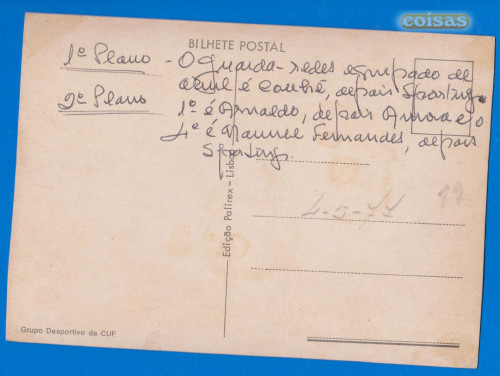 coisas
BILHETE POSTAL
1º Plano - O guarda-redes equipado de
azul é Conhé, depois Sporting.
2º Plano 1º é Arnaldo, depois Amora e o
4º é Manuel Fernandes, depois
Sporting.
Edição Palirex - Lisboa
4-5-77
Grupo Desportivo da CUF